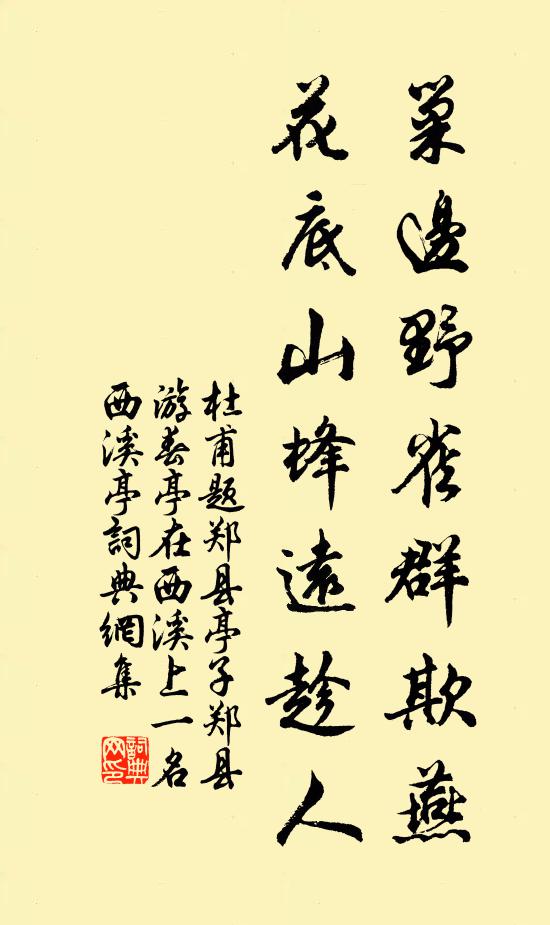 巢邊野雀群欺燕
花底山蜂遠趁人
杜甫题郑县亭子郑县
游春亭在西溪上一名
西溪亭詞典網集
詞典
网印